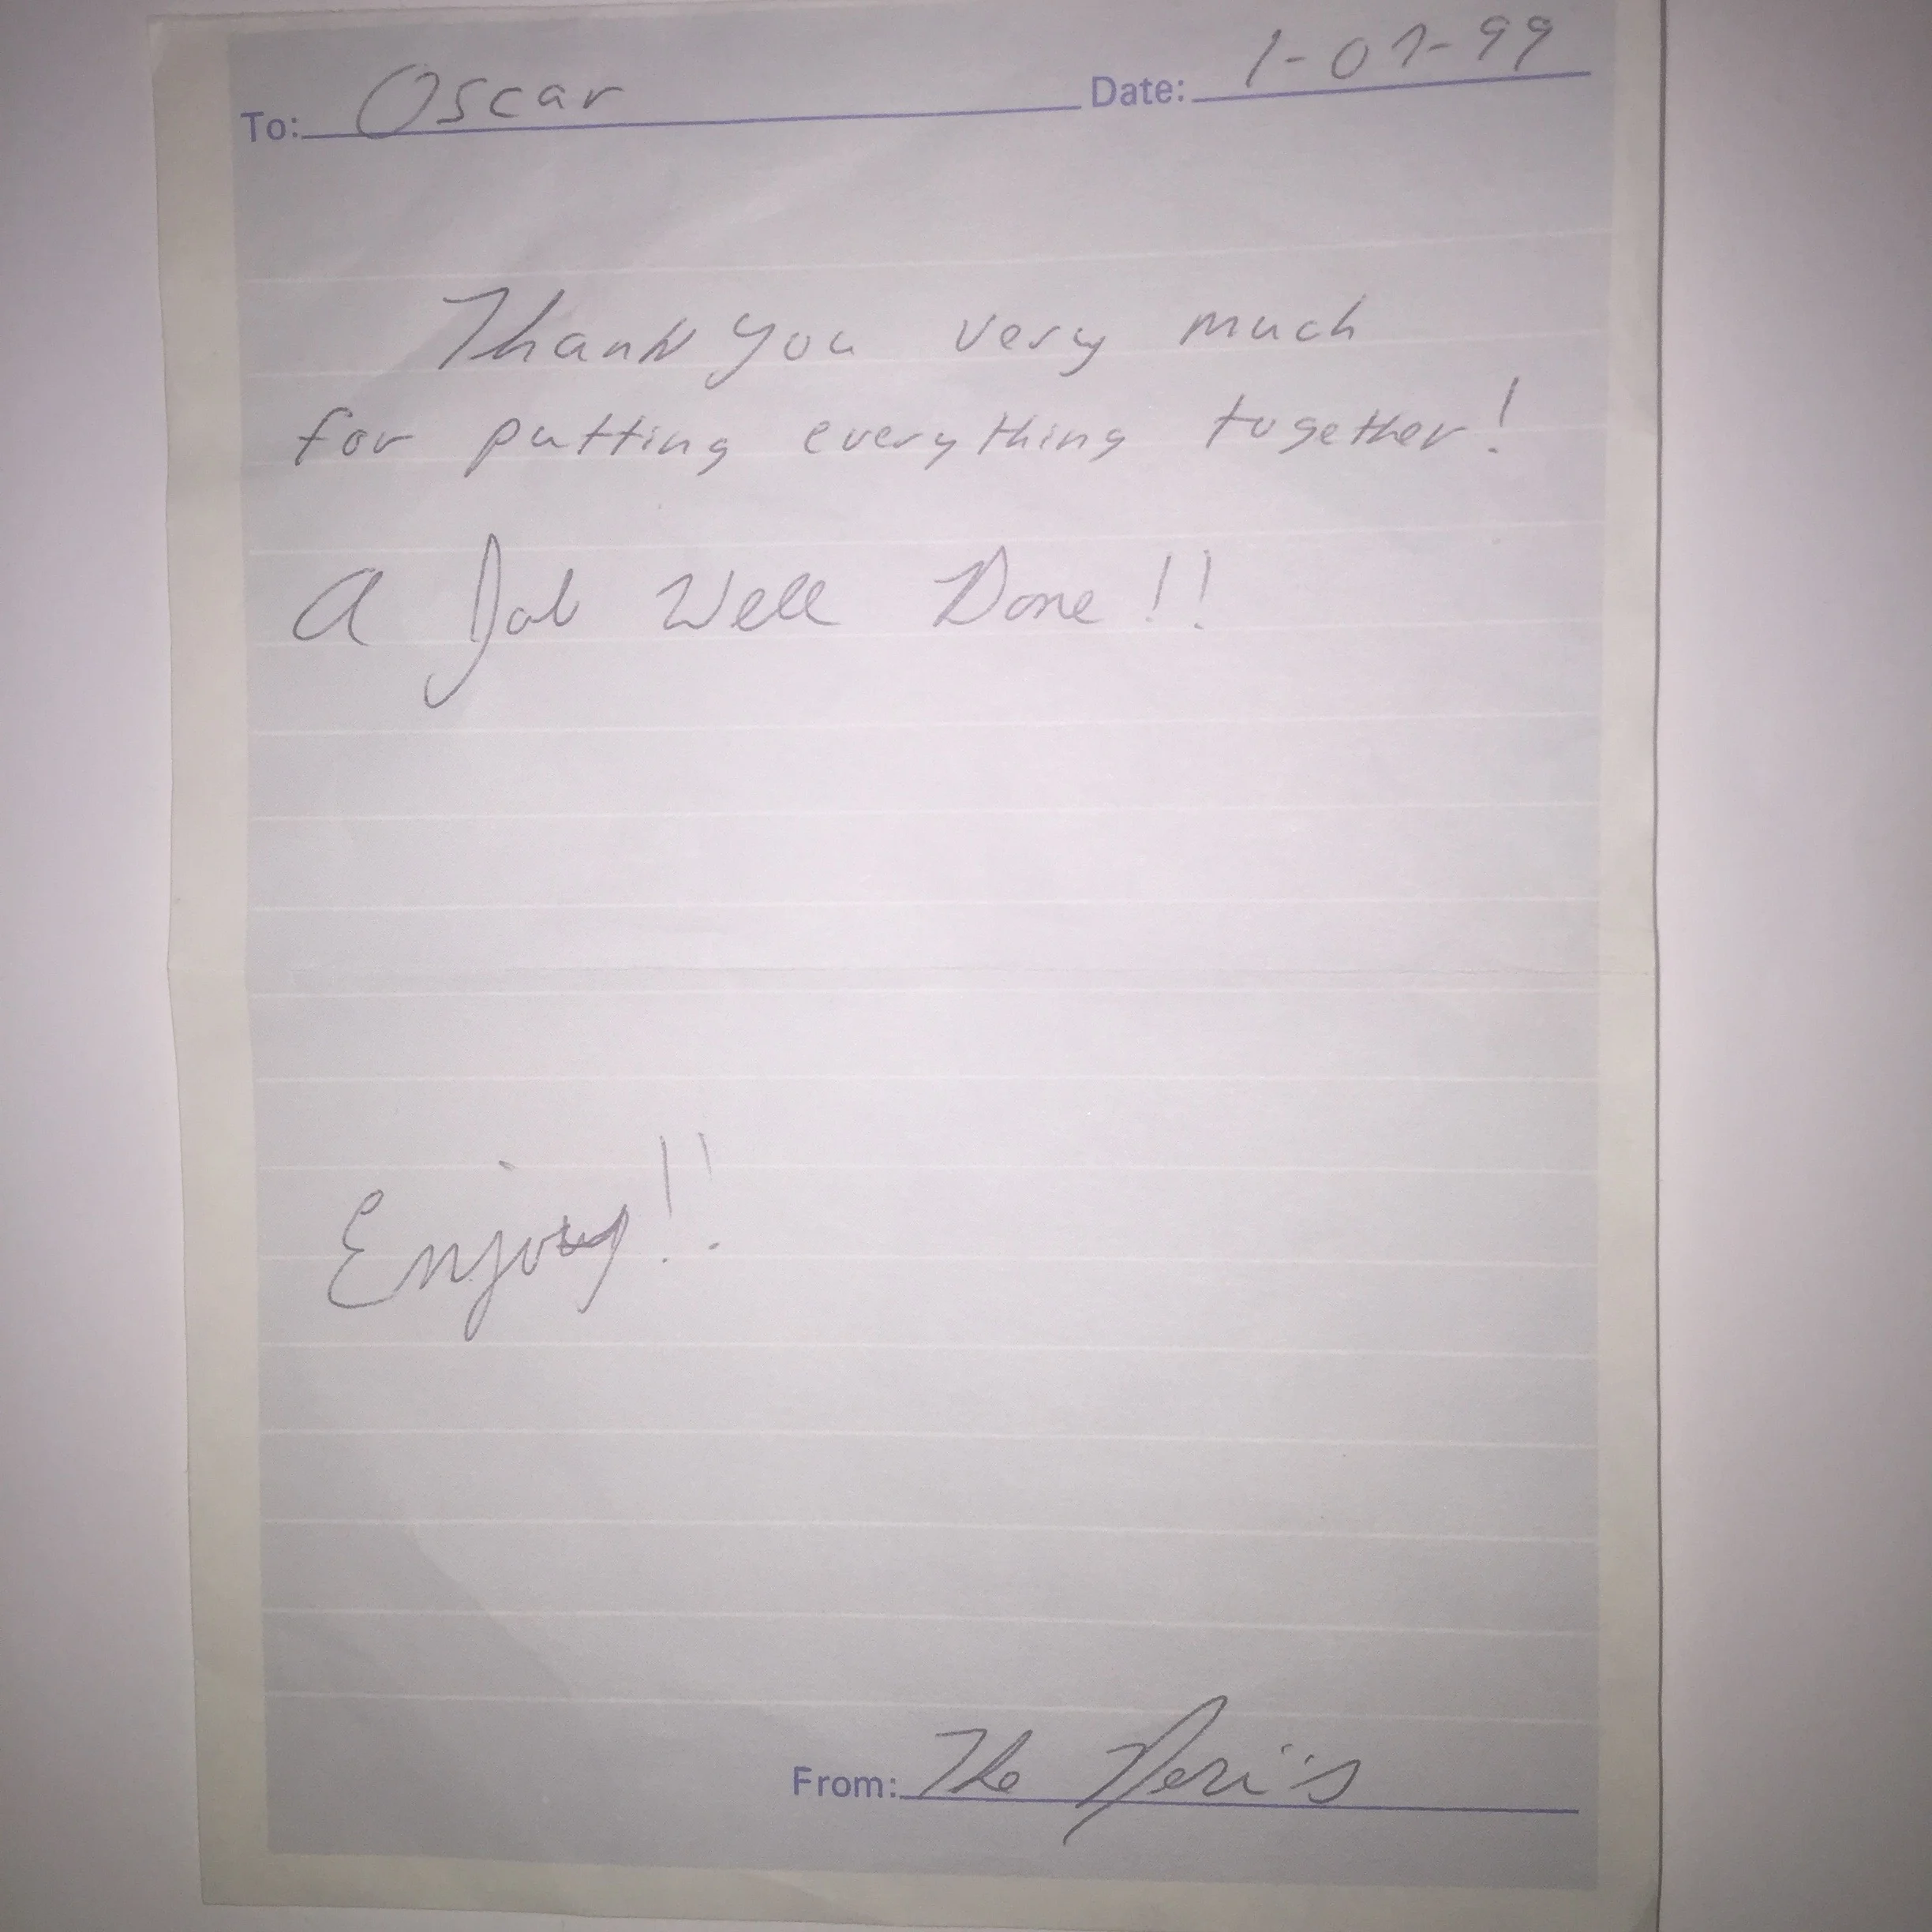 To: Oscar Date: 1-07-99
Thank you very much
for putting everything together!
A Job Well Done!!
Enjoy!!
From: The Neri's